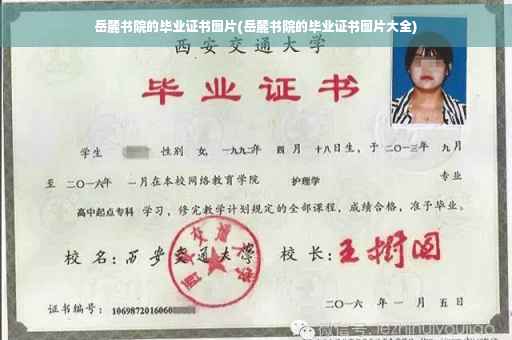 岳麓书院的毕业证书图片(岳麓书院的毕业证书图片大全)
西安交通大学
毕业证书
学生 性别 女，一九九二年 四 月 十八日生，于 二〇一三年 九月
至 二〇一六年 一月在本校网络教育学院 护理学 专业
高中起点专科 学习，修完教学计划规定的全部课程，成绩合格，准予毕业。
校 名：西安交通大学 校 长：王树国
西安交通大学
证书编号：1069872016060
二〇一六 年 一 月 五 日
微信号: jiezhinuiyoujiao